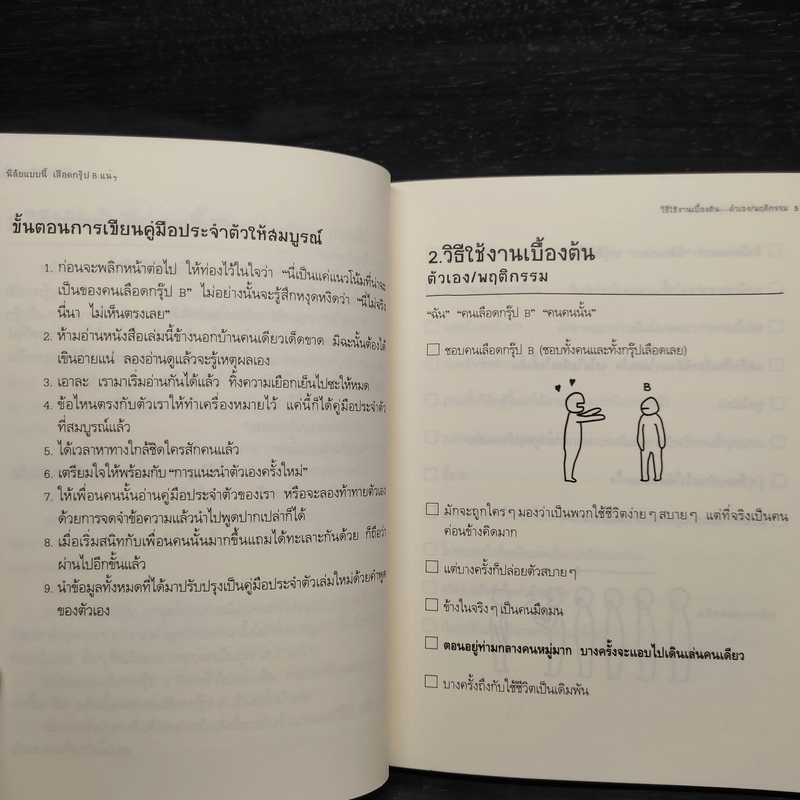 นิสัยแบบนี้ เลือดกรุ๊ป B แน่ๆ
ขั้นตอนการเขียนคู่มือประจำตัวให้สมบูรณ์
1. ก่อนจะพลิกหน้าต่อไป ให้ท่องไว้ในใจว่า "นี่เป็นแค่แนวโน้มที่น่าจะ
เป็นของคนเลือดกรุ๊ป B" ไม่อย่างนั้นจะรู้สึกหงุดหงิดว่า "นี่ไม่จริง
นี่นา ไม่เห็นตรงเลย"
2. ห้ามอ่านหนังสือเล่มนี้ข้างนอกบ้านคนเดียวเด็ดขาด มิฉะนั้นต้องได้
เขินอายแน่ ลองอ่านดูแล้วจะรู้เหตุผลเอง
3. เอาละ เรามาเริ่มอ่านกันได้แล้ว ทิ้งความเยือกเย็นไปซะให้หมด
4. ข้อไหนตรงกับตัวเราให้ทำเครื่องหมายไว้ แค่นี้ก็ได้คู่มือประจำตัว
ที่สมบูรณ์แล้ว
5. ได้เวลาหาทางใกล้ชิดใครสักคนแล้ว
6. เตรียมใจให้พร้อมกับ "การแนะนำตัวเองครั้งใหม่"
7. ให้เพื่อนคนนั้นอ่านคู่มือประจำตัวของเรา หรือจะลองท้าทายตัวเอง
ด้วยการจดจำข้อความแล้วนำไปพูดปากเปล่าก็ได้
8. เมื่อเริ่มสนิทกับเพื่อนคนนั้นมากขึ้นแถมได้ทะเลาะกันด้วย ก็ถือว่า
ผ่านไปอีกขั้นแล้ว
9. นำข้อมูลทั้งหมดที่ได้มาปรับปรุงเป็นคู่มือประจำตัวเล่มใหม่ด้วยคำพูด
ของตัวเอง
วิธีใช้งานเบื้องต้น—ตัวเอง/พฤติกรรม 5
2.วิธีใช้งานเบื้องต้น
ตัวเอง/พฤติกรรม
"ฉัน" "คนเลือดกรุ๊ป B" "คนคนนั้น"
ชอบคนเลือดกรุ๊ป B (ชอบทั้งคนและทั้งกรุ๊ปเลือดเลย)
B
มักจะถูกใครๆ มองว่าเป็นพวกใช้ชีวิตง่ายๆ สบายๆ แต่ที่จริงเป็นคน
ค่อนข้างคิดมาก
แต่บางครั้งก็ปล่อยตัวสบายๆ
ข้างในจริงๆ เป็นคนมืดมน
ตอนอยู่ท่ามกลางคนหมู่มาก บางครั้งจะแอบไปเดินเล่นคนเดียว
บางครั้งถึงกับใช้ชีวิตเป็นเดิมพัน